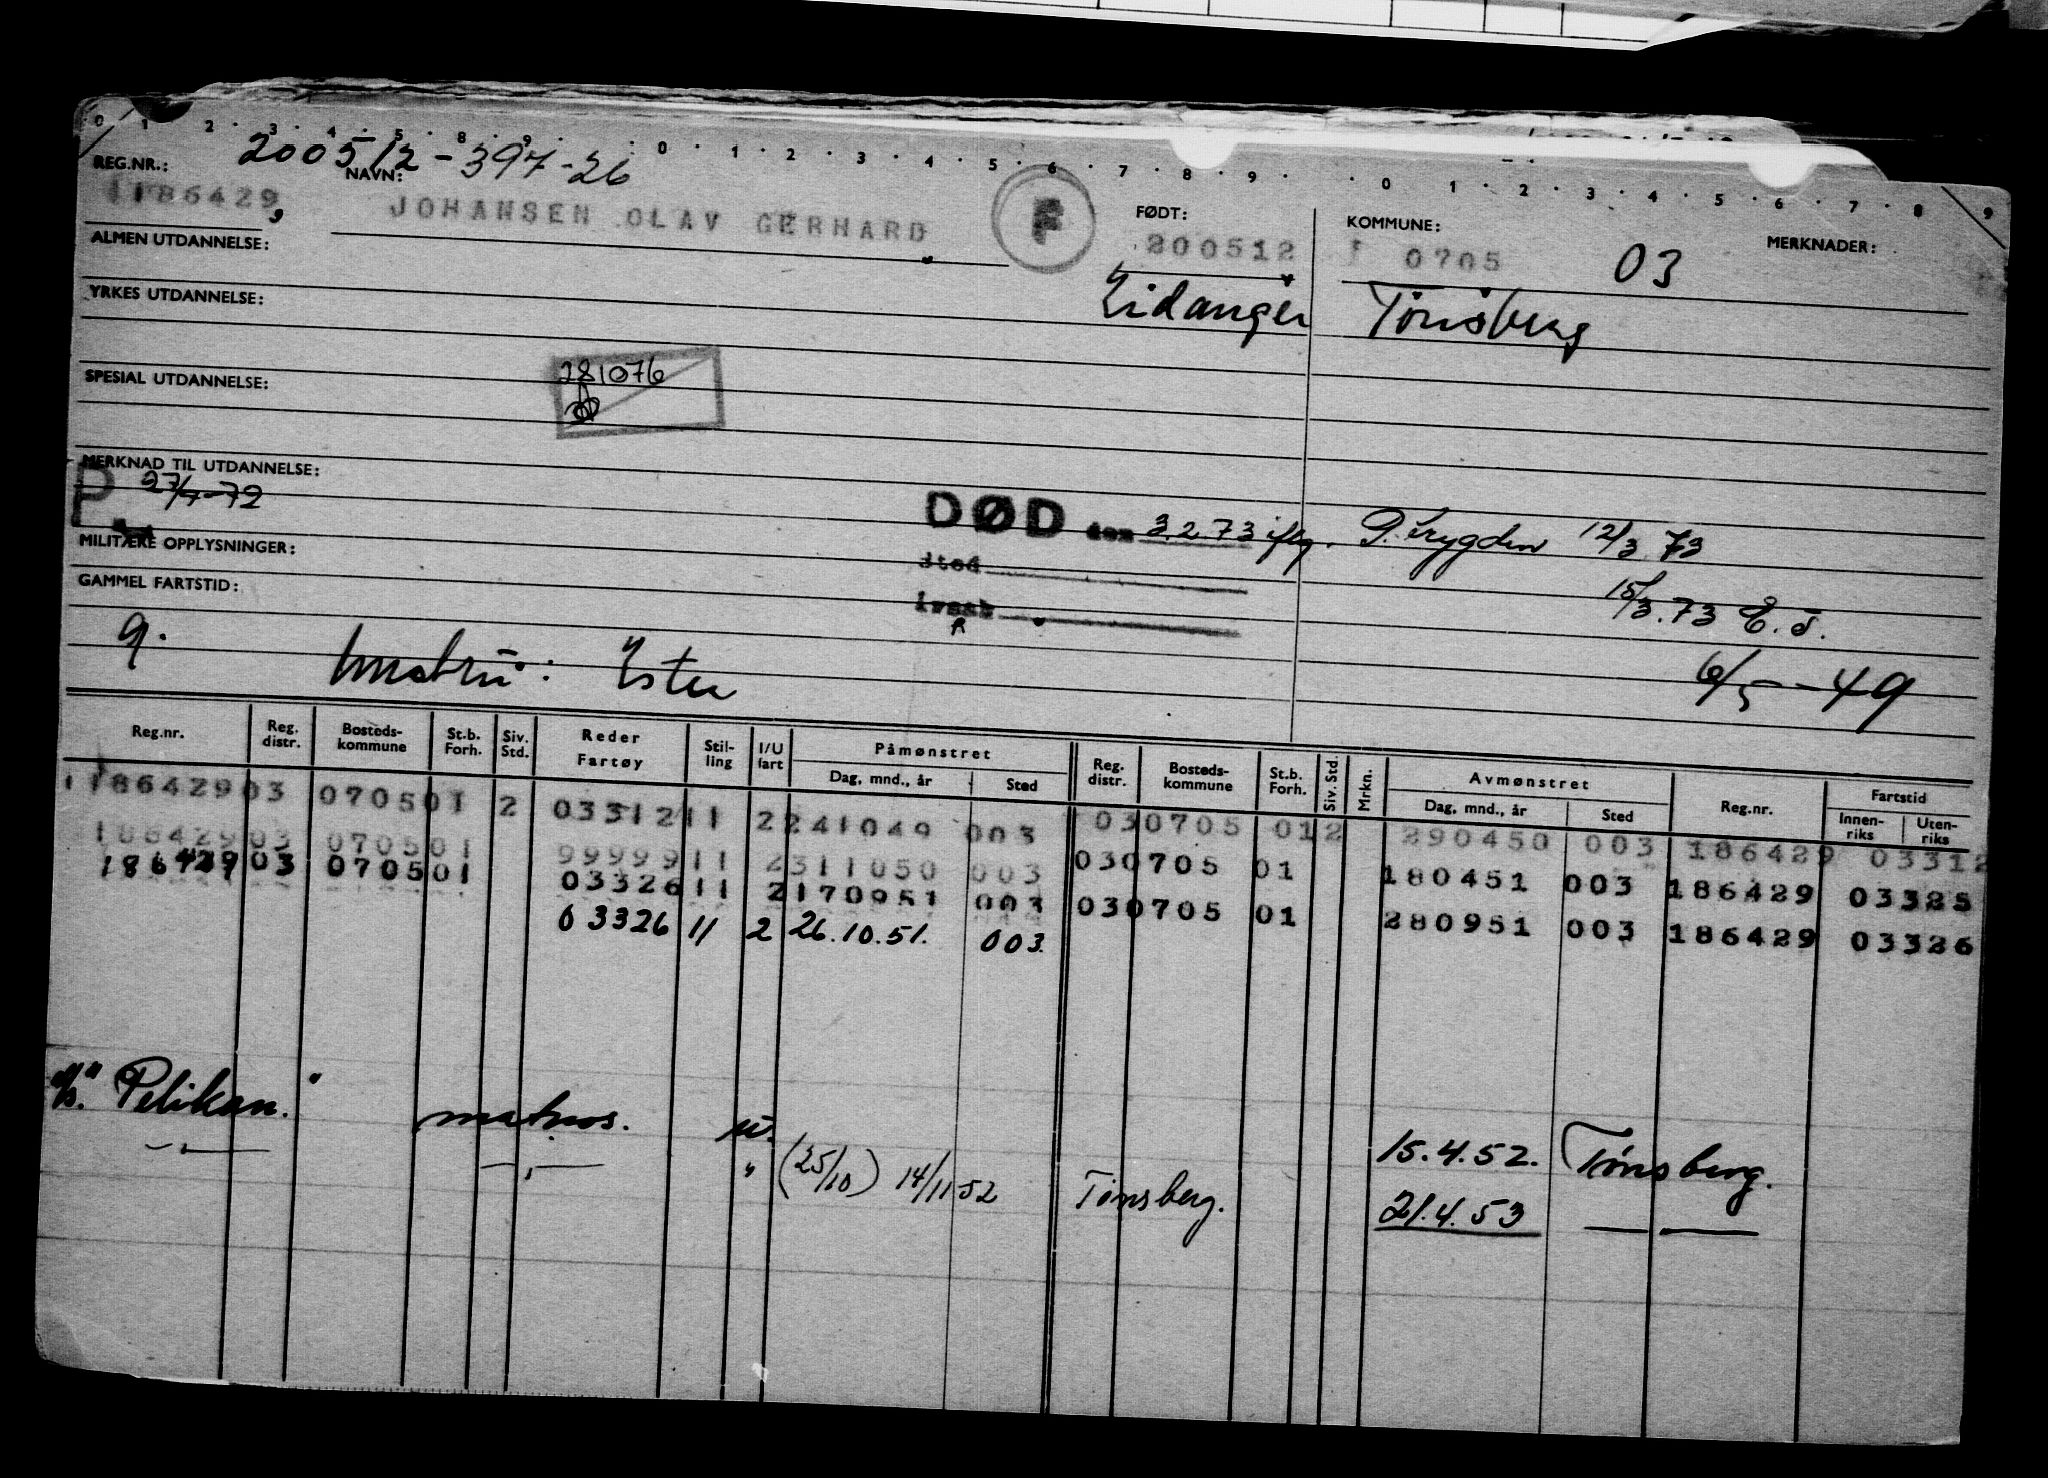 0 1 2 3 4 5 8 9 0 1 2 3 4 5 6 7 8 9 0 1 2 3 4 5 6 7 8 9
200512-397-26
REG.NR.: NAVN: FØDT: KOMMUNE: MERKNADER:
186429 JOHANSEN OLAV GERHARD F 200512 0705 03
ALMEN UTDANNELSE:
Eidanger Tönsberg
YRKES UTDANNELSE:
281076
SPESIAL UTDANNELSE:
MERKNAD TIL UTDANNELSE:
P 27/7-72
DØD den 3.2.73 iflg. P.trygden 12/3 73
MILITÆRE OPPLYSNINGER:
sted 15/3.73
GAMMEL FARTSTID:
9. : Ester 6/5-49
Reg.nr. Reg. distr. Bosteds-kommune St.b. Forh. Siv. Std. Reder Fartøy Stil-ling I/U fart Påmønstret Dag, mnd., år Sted Reg. distr. Bosteds-kommune St.b. Forh. Siv. Std. Mrkn. Avmønstret Dag, mnd., år Sted Reg.nr. Fartstid Innen-riks Uten-riks
186429 03 0705 01 2 03312 11 2 241049 003 03 0705 01 2 290450 003 186429 03312
186429 03 0705 01 99999 11 2 311050 003 03 0705 01 180451 003 186429 03325
186429 03 0705 01 03326 11 2 170951 003 03 0705 01 280951 003 186429 03326
03326 11 2 26.10.51. 003
"Pelikan." matros. u. 15.4.52. Tönsberg.
— " — — " — " (25/10) 14/11 52 Tönsberg. 21.4.53 — —